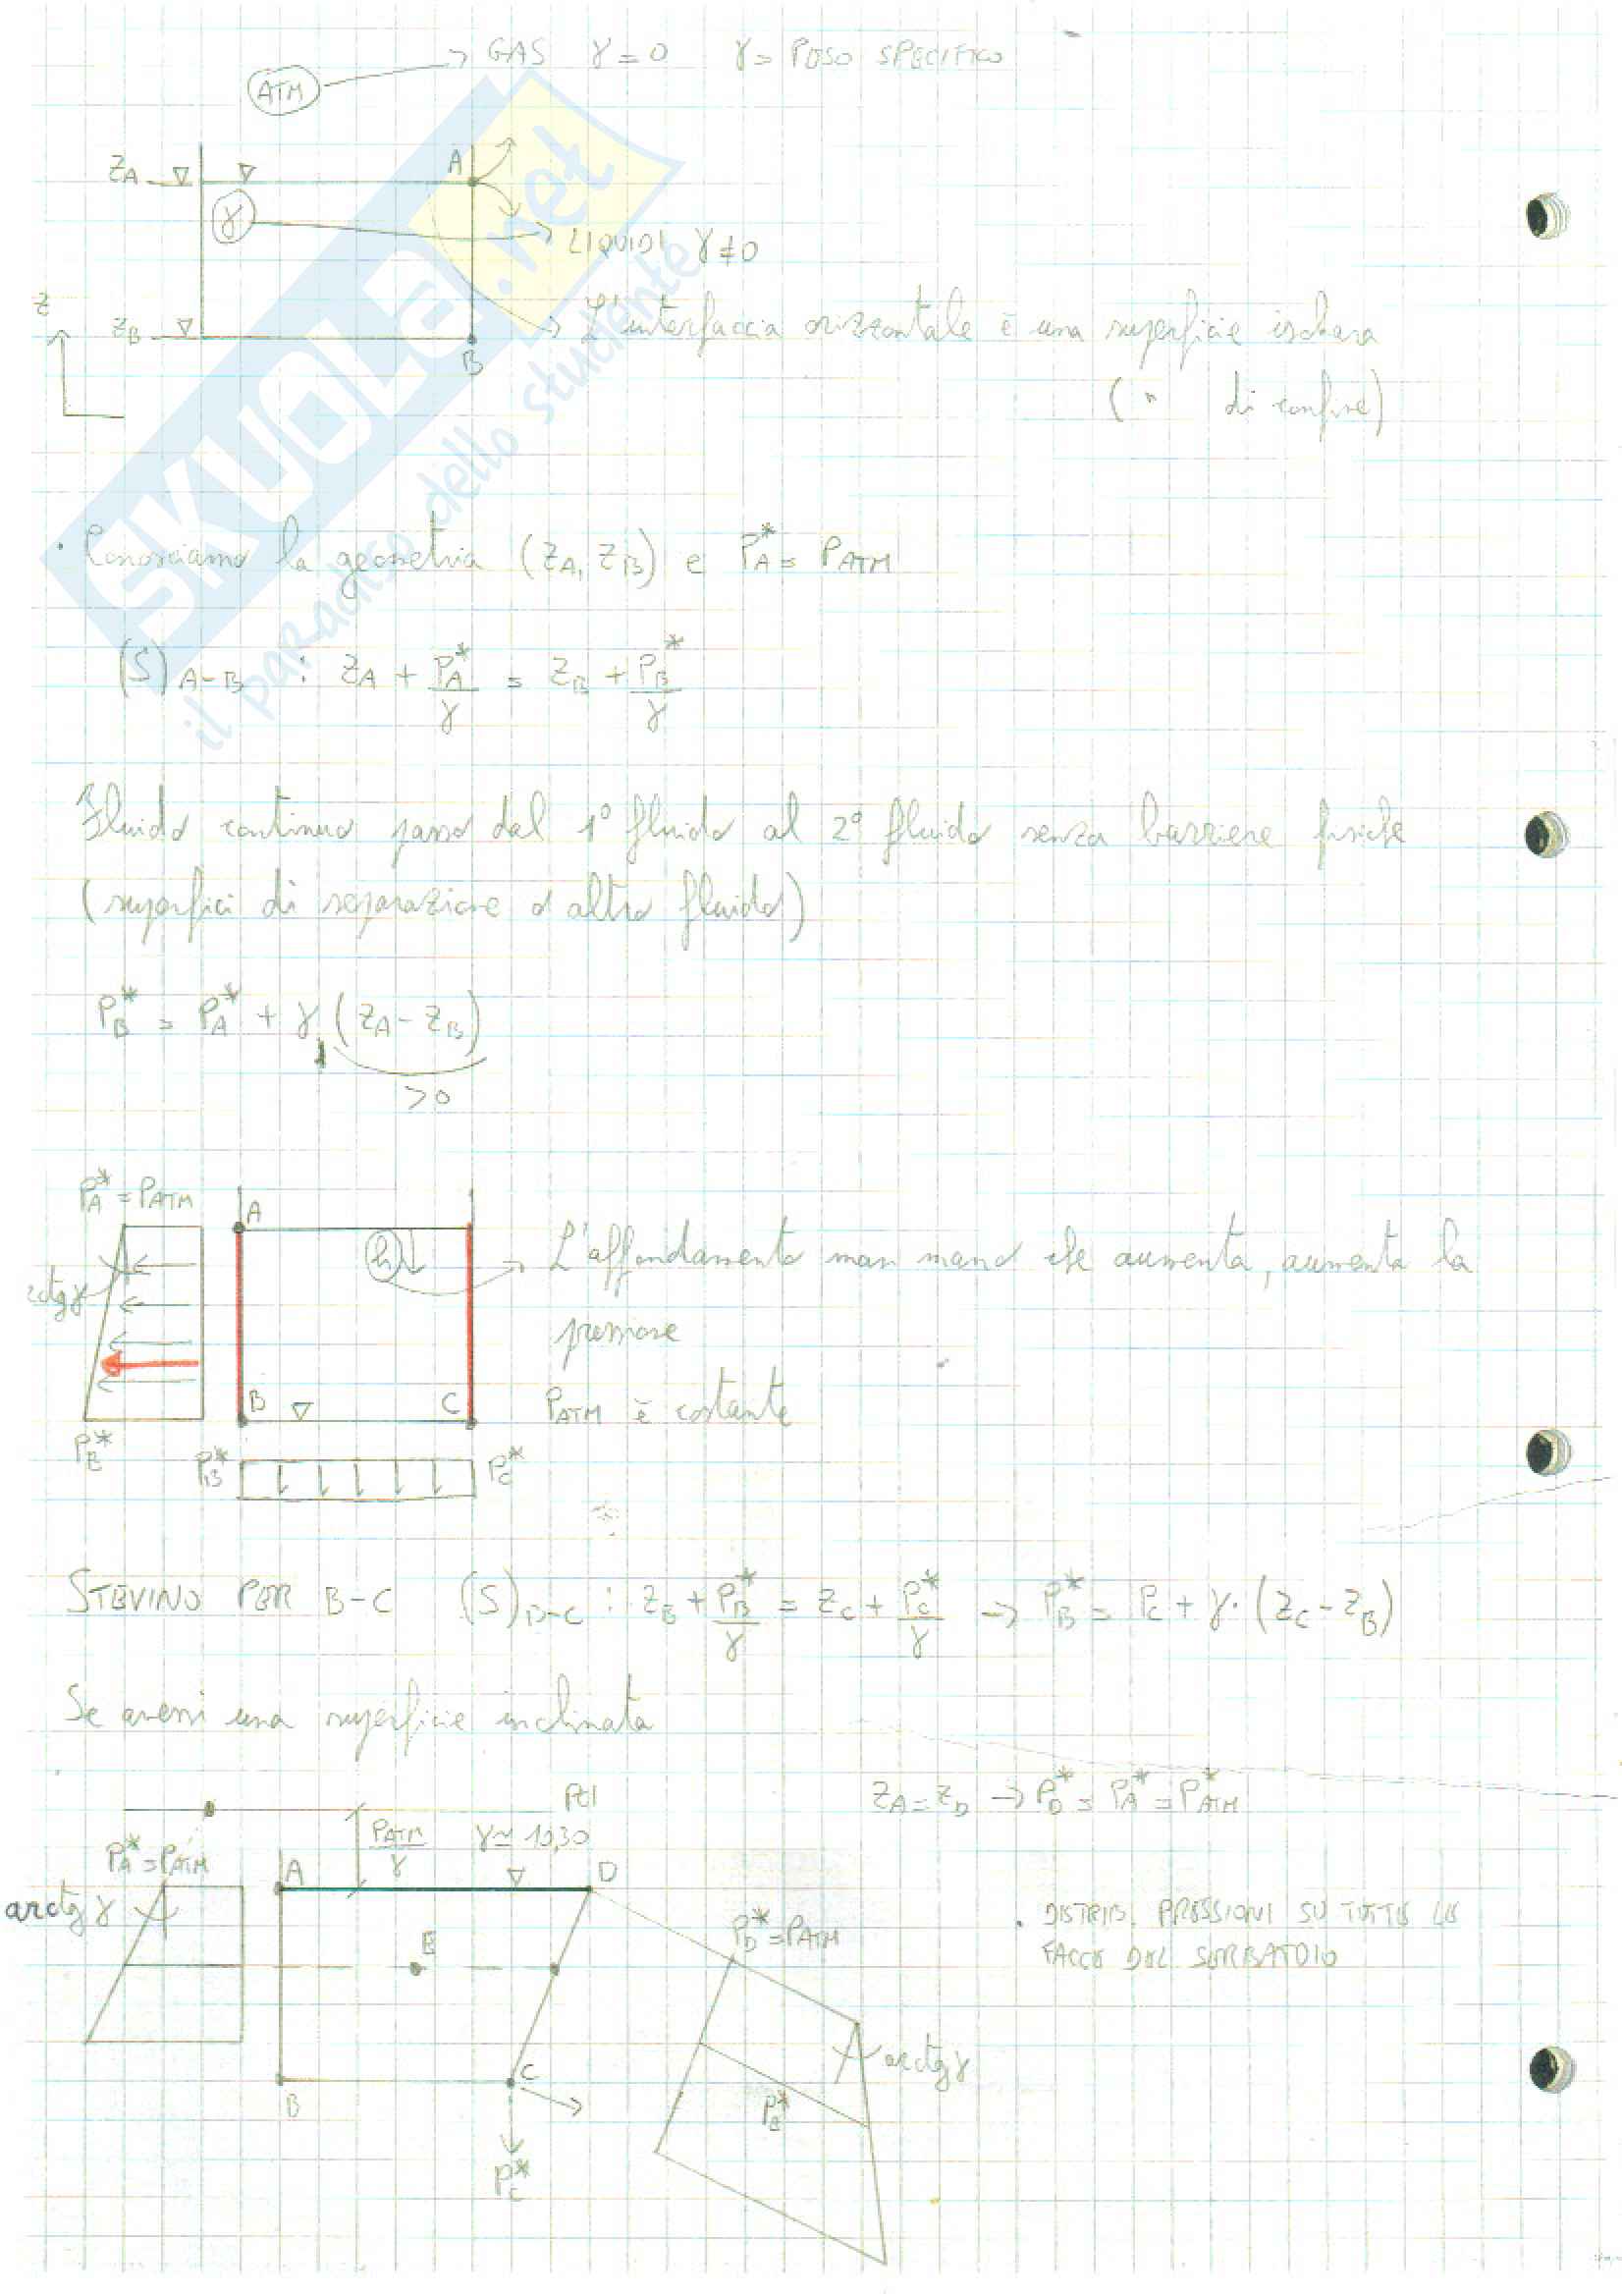 → GAS γ = 0 γ = PESO SPECIFICO
ATM
z_A A
γ
→ LIQUIDI γ ≠ 0
z
z_B B
→ L'interfaccia orizzontale è una superficie isobara
( " di confine)
SKUOLA.net
il paradiso dello studente
· Conosciamo la geometria (z_A, z_B) e P_A* = P_ATM
(S)_A-B : z_A + P_A*/γ = z_B + P_B*/γ
Fluido continuo passo dal 1° fluido al 2° fluido senza barriere fisiche
(superfici di separazione o altro fluido)
P_B* = P_A* + γ (z_A - z_B)
>0
P_A* = P_ATM A
h → L'affondamento man mano che aumenta, aumenta la
pressione
B C P_ATM è costante
P_B* P_B* P_C*
STEVINO PER B-C (S)_B-C : z_B + P_B*/γ = z_C + P_C*/γ → P_B* = P_C + γ · (z_C - z_B)
Se avessi una superficie inclinata
z_A = z_D → P_D* = P_A* = P_ATM*
PCI
P_A* = P_ATM P_ATM/γ γ ≃ 10,30
A D
arctg γ
E
P_D* = P_ATM
· DISTRIB. PRESSIONI SU TUTTE LE
FACCE DEL SERBATOIO
C
arctg γ
B
P_E*
P_C*